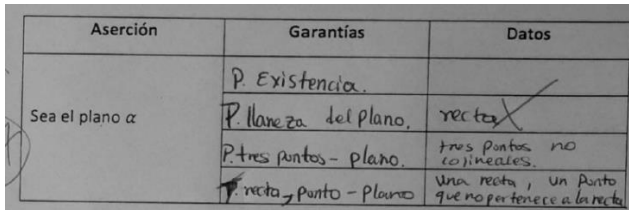 Aserción Garantías Datos
P. Existencia.
Sea el plano α P. llaneza del plano. recta
P. tres puntos - plano. tres puntos no colineales.
P. recta, punto - plano Una recta, un punto
que no pertenece a la recta